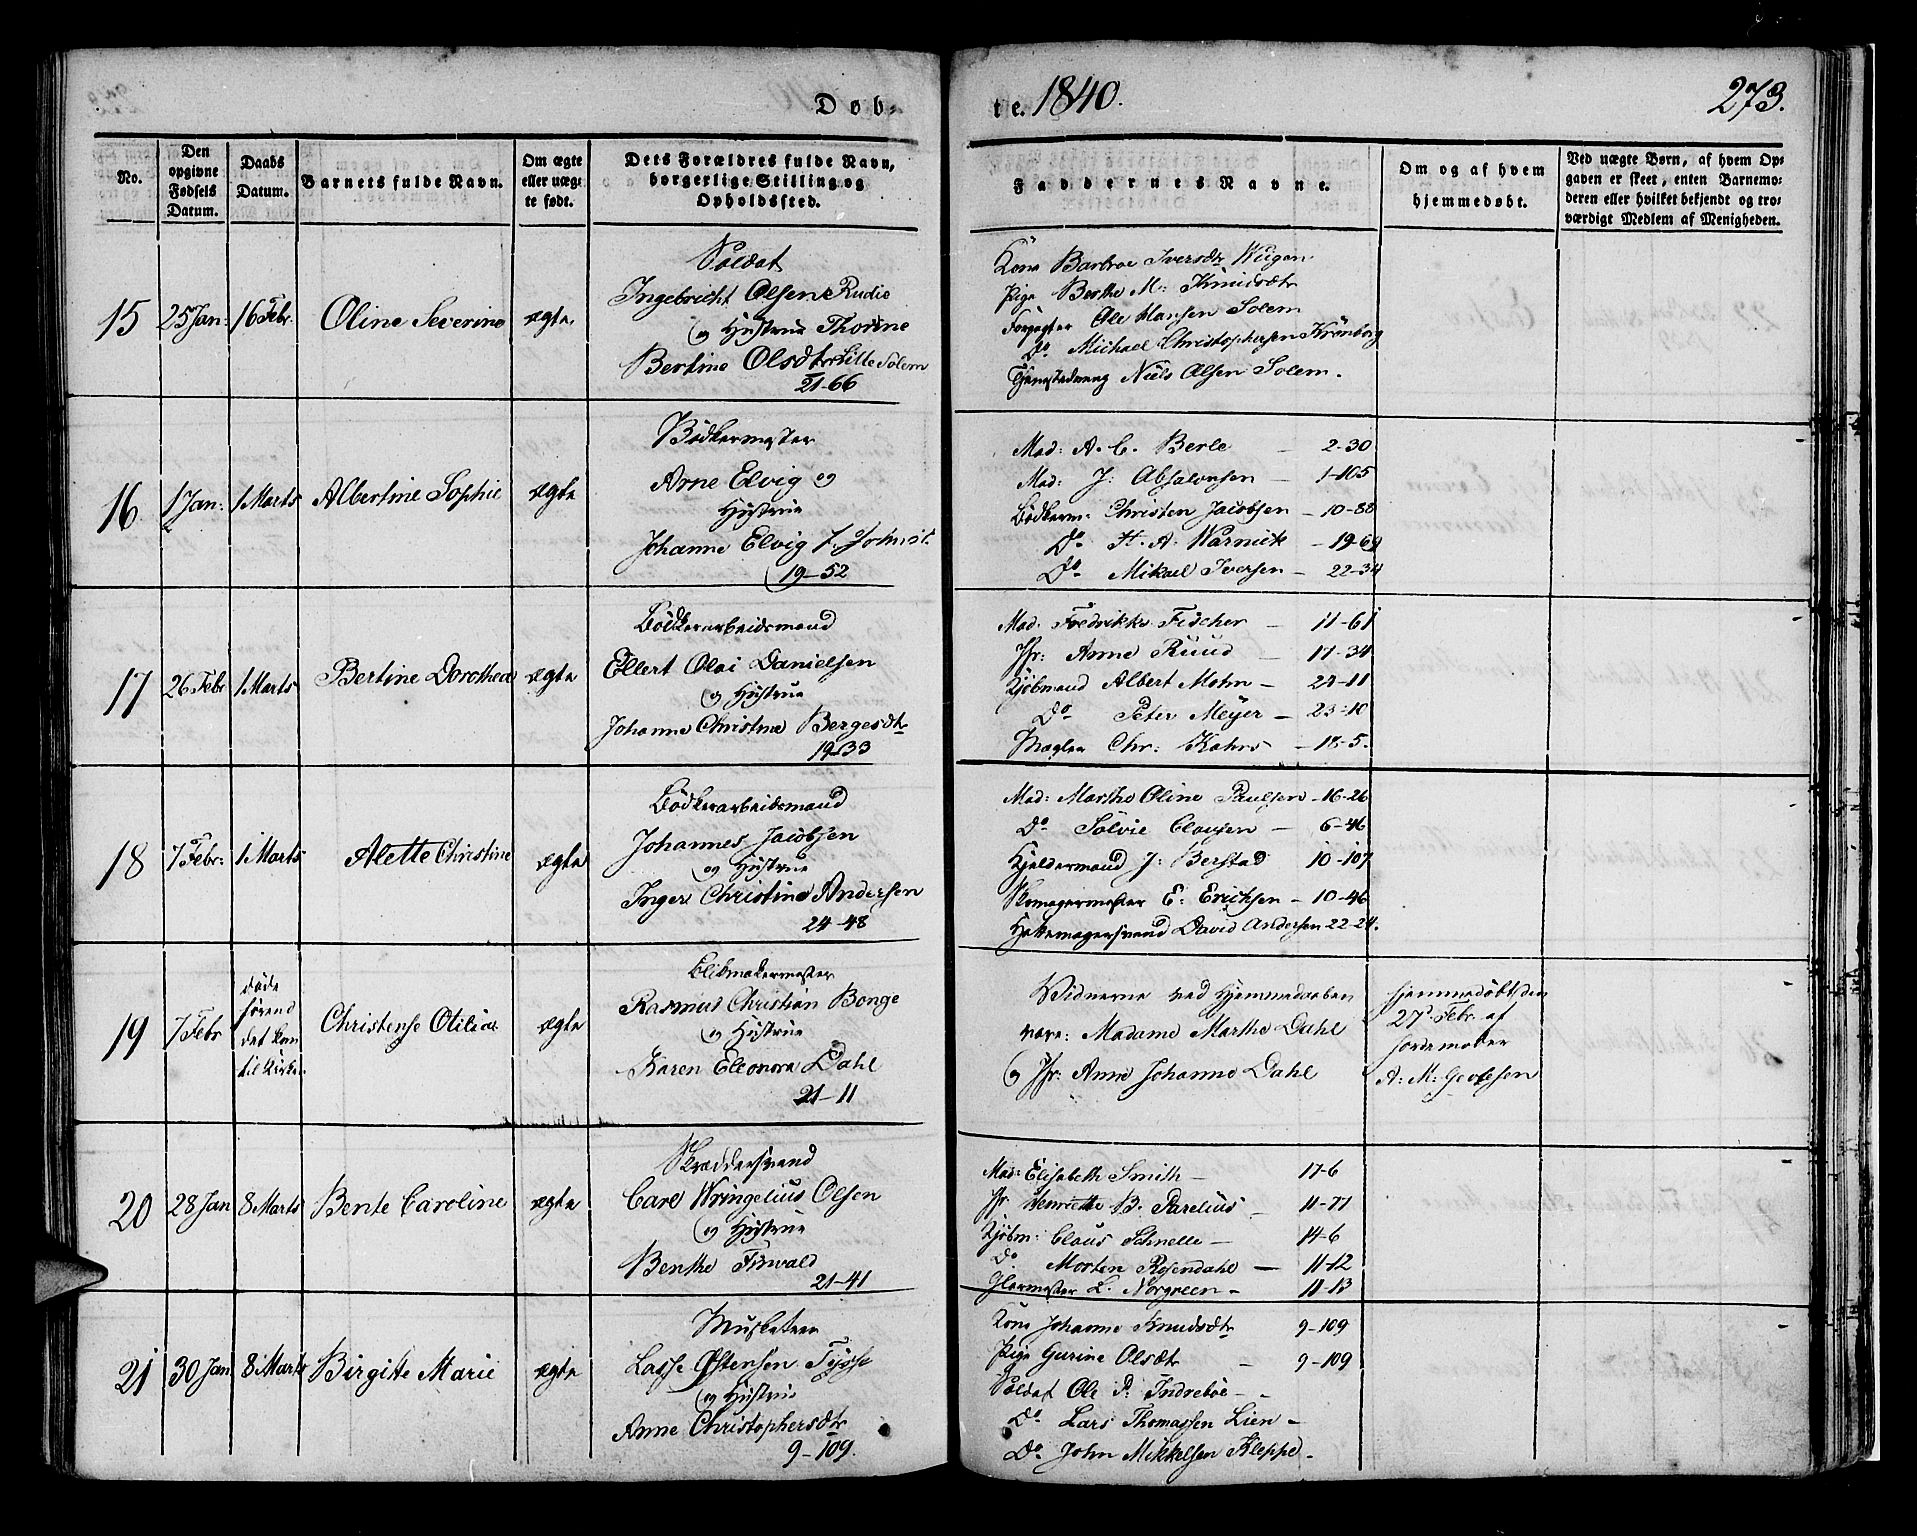 Døb-
te. 1840.
273.
No.
Den opgivne Fødsels Datum.
Daabs Datum.
Barnets fulde Navn.
Om ægte eller uægte født.
Dets Forældres fulde Navn, borgerlige Stilling og Opholdssted.
Faddernes Navne.
Om og af hvem hjemmedøbt.
Ved uægte Børn, af hvem Opgaven er skeet, enten Barnemoderen eller hvilket bekjendt og troværdigt Medlem af Menigheden.
15 25 Jan: 16 Febr. Oline Severine ægte
Soldat
Ingebricht Olsen Rudie
og Hustrue Thorine
Bertine Olsdtr Lille Solem
21-66
Kone Barbroe Iversdtr Wugen
Pige Berthe M: Knudsdtr
Ole Hansen Solem
Do Michael Christophersen Kronborg
Niels Olsen Solem.
16. 1 Jan: 1 Marts Albertine Sophie ægte
Bödkermester
Arne Elvig og
Hustrue
Johanne Elvig f. Johnsd.
19-52
Mad: A. C. Berle - 2-30
Mad: J: Absalonsen - 1-105
Bödkerm: Christen Jacobsen - 10-88
Do H. A. Warnick - 19-69
Do Mikael Iversen - 22-34
17 26 Febr 1 Marts Bertine Dorothea ægte
Bödkerarbeidsmand
Ellert Olai Danielsen
og Hustrue
Johanne Christine Bergesdtr
19-33
Mad. Fredrikke Fischer - 11-61
Jfr: Anne Ruud - 17-34
Kjöbmand Albert Mohn - 24-11
Do Peter Meyer - 23-10
Mægler Chr: Kahrs - 18-5.
18 7 Febr: 1 Marts Alette Christine ægte
Bödkerarbeidsmand
Johannes Jacobsen
og Hustrue
Inger Christine Andersen
24-48
Mad: Marthe Oline Paulsen - 16-26
Do Sölvie Clausen - 6-46
Kjeldermand J: Berstad 10-107
Skomagermester E: Erichsen - 10-46
David Andersen 22-24.
19 7 Febr
døde
førend
det kom
til Kirken
Christense Otilia ægte
Blikmakermester
Rasmus Christian Bonge
og Hustrue
Karen Eleonora Dahl
21-11
Vidnerne ved Hjemmedaaben
vare: Madame Marthe Dahl
og Jfr: Anne Johanne Dahl
hjemmedöbt den
27 Febr. af
Jordemoder
A: M: Gertsen
20 28 Jan 8 Marts Bente Caroline ægte
Skræddersvend
Carl Wringelius Olsen
og Hustrue
Benthe Finvald
21-41
Mad: Elisabeth Smith - 17-6
Jfr Henriette B. Parelius - 11-77
Kjöbm: Claus Schnelle - 14-6
Do Morten Rosendahl - 11-12
Glarmester L. Norgreen - 11-13
21 30 Jan 8 Marts Birgitte Marie ægte
Musketeer
Lasse Østensen Tysse
og Hustrue
Anne Christophersdtr
9-109.
Kone Johanne Knudsdtr 9-109
Pige Gurine Olsdtr - 9-109
Soldat Ole P: Indreböe -
Do Lars Thomassen Lien -
Do John Mikkelsen Kleppe -